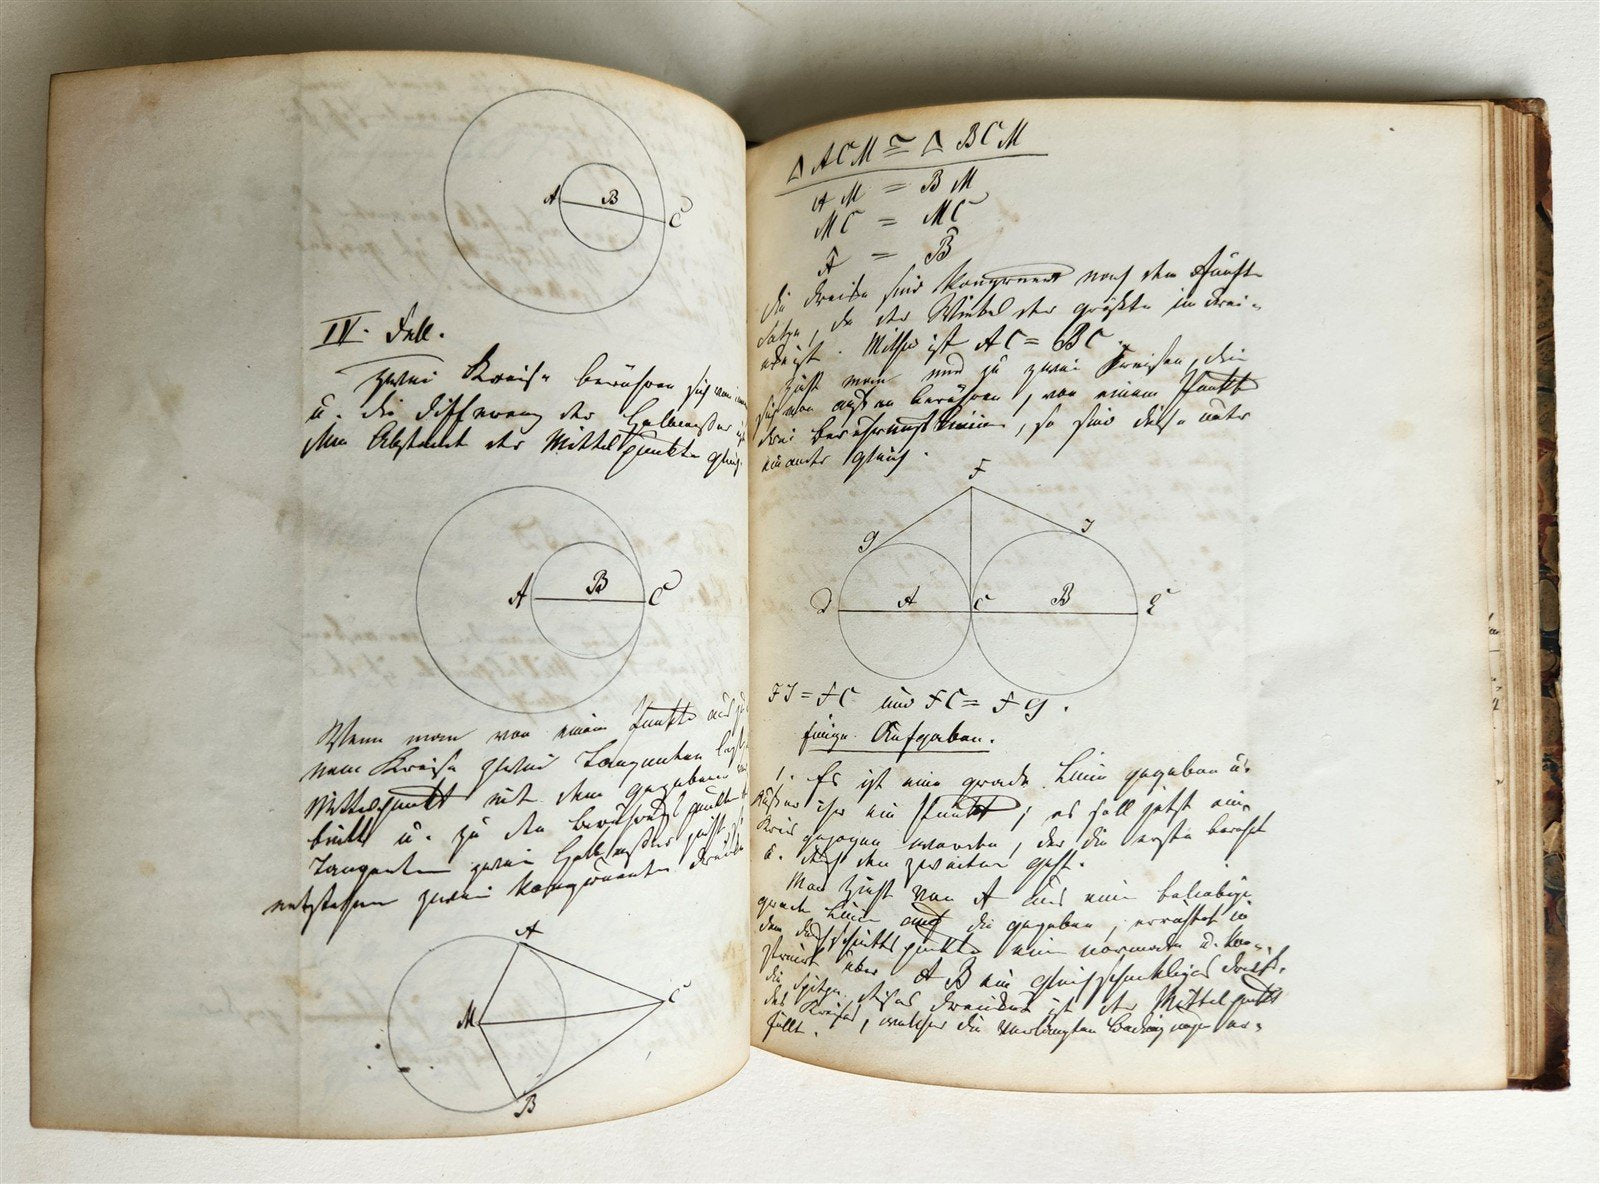 A B C
IV. Fall.
Zwei Kreise berühren sich von innen
u. die Differenz der Halbmesser ist
dem Abstand der Mittelpunkte gleich.
A B C
Wenn man von einem Punkte aus zu
nem Kreise zwei Tangenten legt
Mittelpunkt mit dem gegebenen
bindet u. zu den Berührungspunkten
Tangenten zwei Halbmesser zieht, so
entstehen zwei kongruente Dreiecke
A
M C
B
△ ACM ≅ △ BCM
AM = BM
MC = MC
A = B
Die Dreiecke sind kongruent nach dem fünften
Satze, da der Winkel der größte im Drei-
ecke ist. Mithin ist AC = BC.
Zieht man nun zu zwei Kreisen, die
sich von außen berühren, von einem Punkte
drei Berührungslinien, so sind diese unter
einander gleich.
F
G J
D A C B E
FJ = FC und FC = FG.
Einige Aufgaben.
1. Es ist eine grade Linie gegeben u.
außer ihr ein Punkt; es soll jetzt ein
Kreis gezogen werden, der die erste berührt
u. durch den zweiten geht.
Man zieht von A aus eine beliebige
grade Linie auf die gegebene, errichtet in
dem Durchschnittspunkte eine normale u. kon-
struirt über AB ein gleichschenkliges Dreieck.
die Spitze dieses Dreiecks ist der Mittelpunkt
des Kreises, welcher die verlangten Bedingungen er-
füllt.